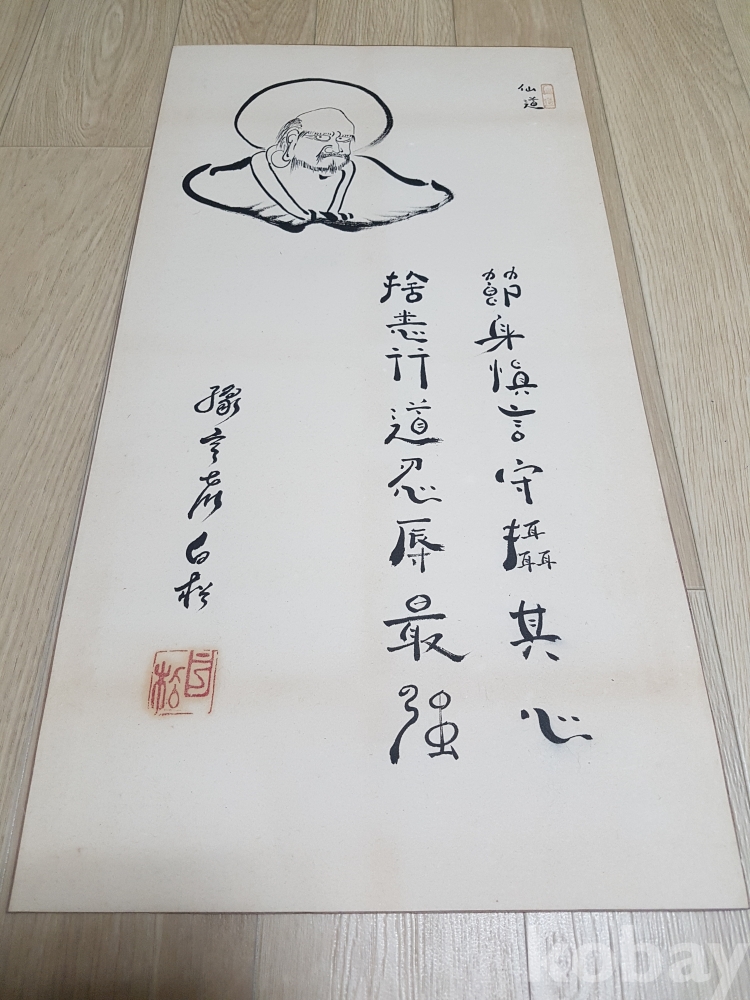 仙道
節身愼言守攝其心
捨恚行道忍辱最强
白松
白松
kobay